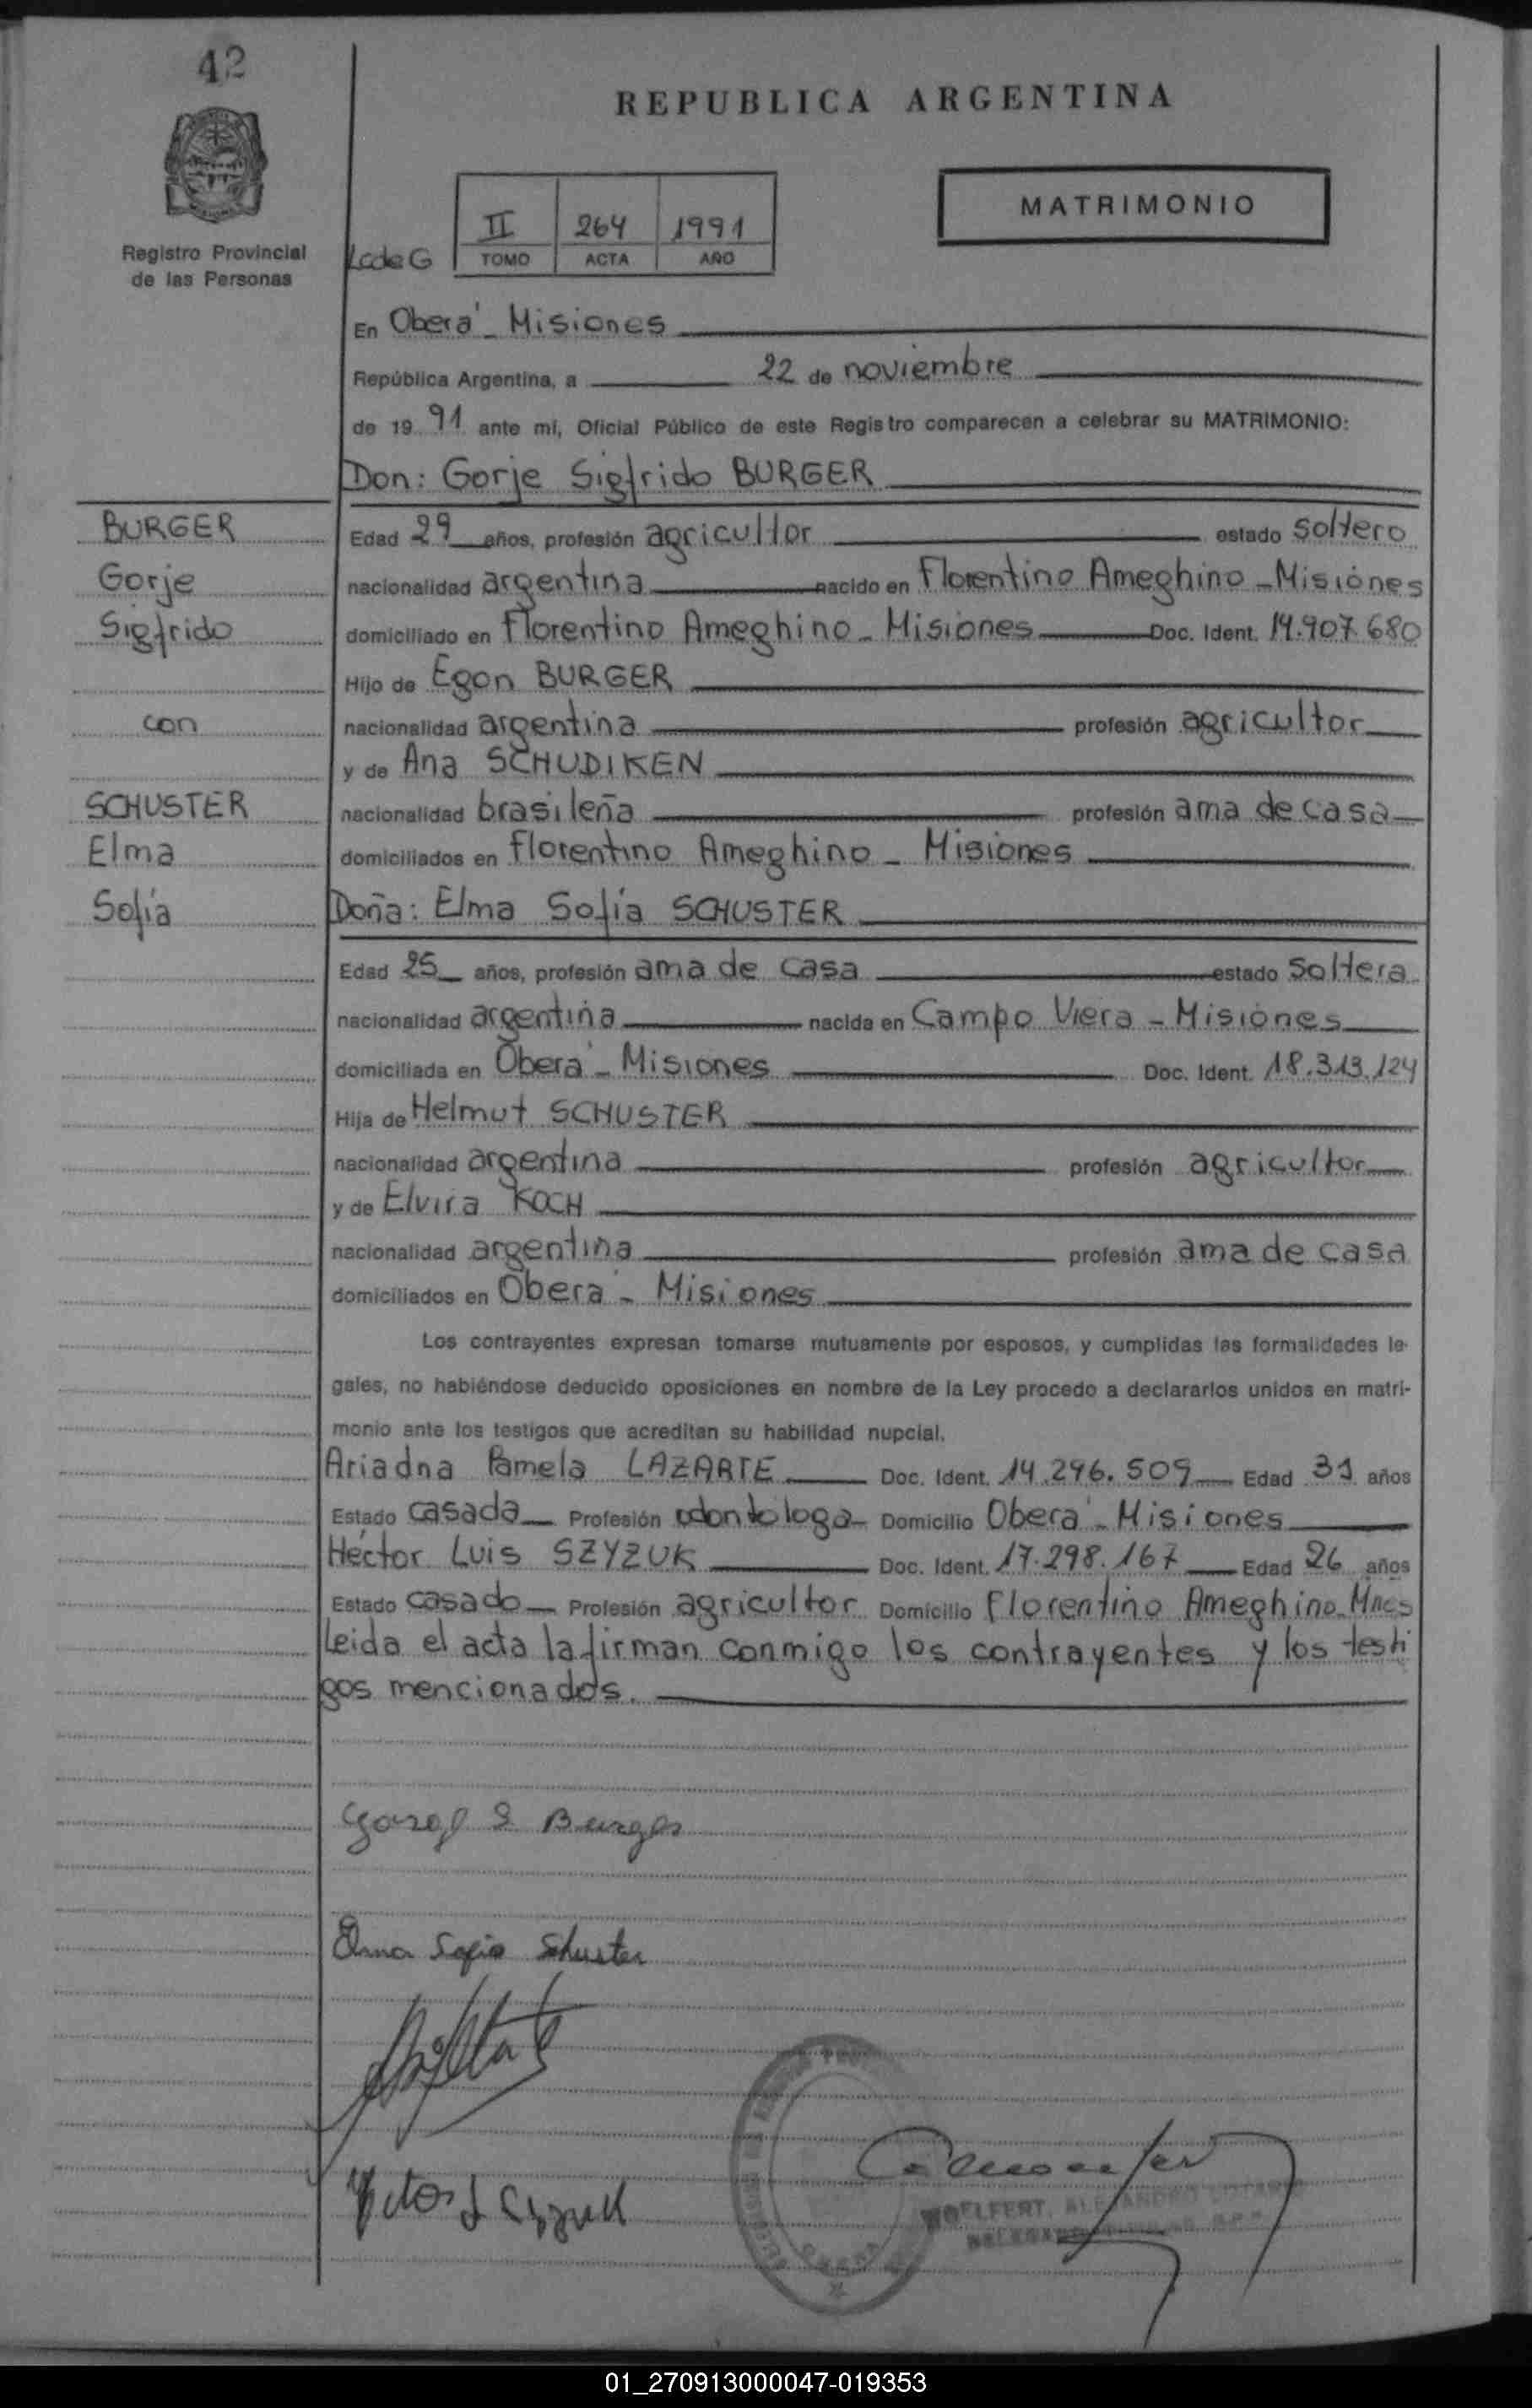 42
REPUBLICA ARGENTINA
Registro Provincial
de las Personas
MATRIMONIO
II 264 1991
TOMO ACTA AÑO
En Oberá - Misiones
República Argentina, a 22 de noviembre
de 19 91 ante mi, Oficial Público de este Registro comparecen a celebrar su MATRIMONIO:
Don: Gorje Sigfrido BURGER
BURGER
Gorje
Sigfrido
con
SCHUSTER
Elma
Sofía
Edad 29 años, profesión agricultor estado soltero
nacionalidad argentina nacido en Florentino Ameghino - Misiones
domiciliado en Florentino Ameghino - Misiones Doc. Ident. 14.907.680
Hijo de Egon BURGER
nacionalidad argentina profesión agricultor
y de Ana SCHUDIKEN
nacionalidad brasileña profesión ama de casa
domiciliados en Florentino Ameghino - Misiones
Doña: Elma Sofía SCHUSTER
Edad 25 años, profesión ama de casa estado soltera
nacionalidad argentina nacida en Campo Viera - Misiones
domiciliada en Oberá - Misiones Doc. Ident. 18.313.124
Hija de Helmut SCHUSTER
nacionalidad argentina profesión agricultor
y de Elvira KOCH
nacionalidad argentina profesión ama de casa
domiciliados en Oberá - Misiones
Los contrayentes expresan tomarse mutuamente por esposos, y cumplidas las formalidades le-
gales, no habiéndose deducido oposiciones en nombre de la Ley procedo a declararlos unidos en matri-
monio ante los testigos que acreditan su habilidad nupcial.
Ariadna Pamela LAZARTE Doc. Ident. 14.296.509 Edad 31 años
Estado casada Profesión odontologa Domicilio Oberá - Misiones
Héctor Luis SZYZUK Doc. Ident. 17.298.167 Edad 26 años
Estado casado Profesión agricultor Domicilio Florentino Ameghino - Mnes
Leida el acta la firman conmigo los contrayentes y los testi
gos mencionados.
Elma Sofia Schuster
01_270913000047-019353